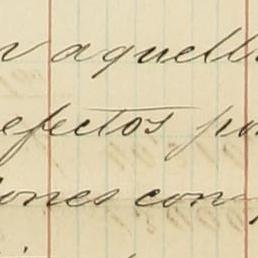 aquell
efectos po
iones con